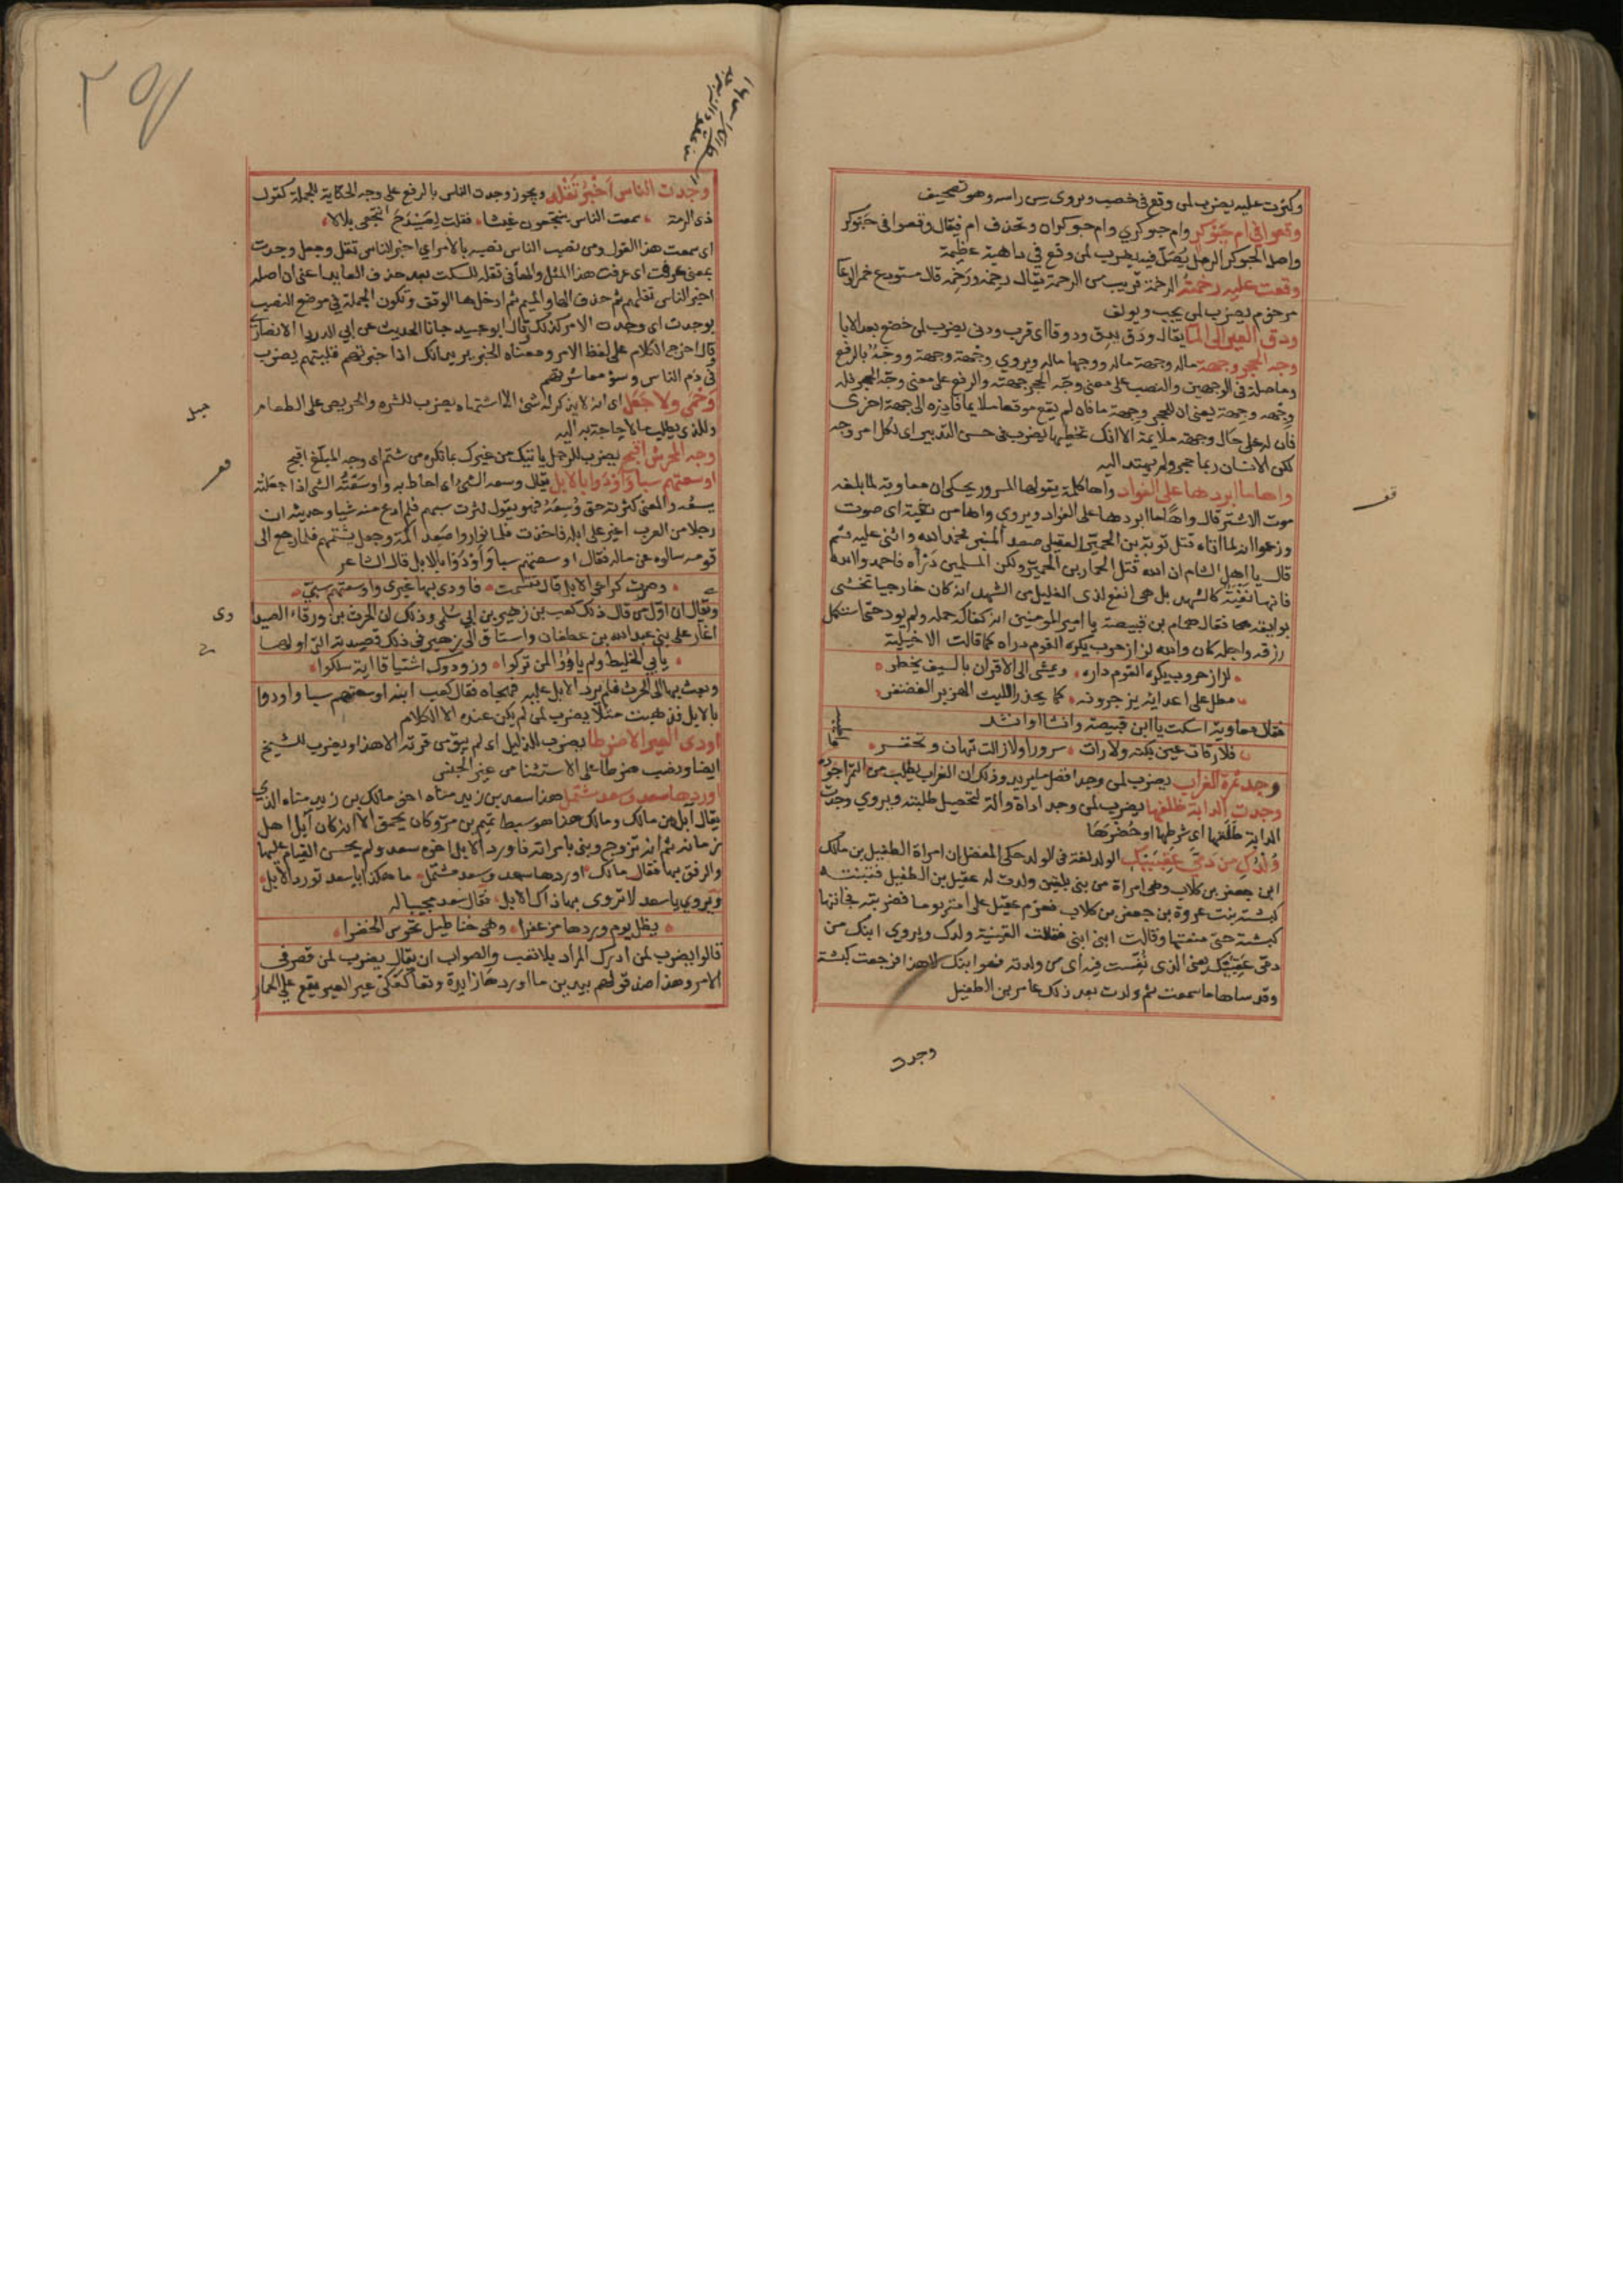 وكثرت عليه يضرب لمن وقع في خصب ويروى سي راسه وهو تصحيف
وقعوا في ام حبوكر وام حبوكري وام حبوكران وتحذف ام فيقال وقعوا في حبوكر
واصل الحبوكر الرمل يضل فيه يضرب لمن وقع في داهية عظيمة
وقعت عليه رخمته الرخمة قريب من الرحمة يقال رخمه ورخمه قال مستودع خمر الوعا
مرخوم يضرب لمن يحب ويولف
ودق العير الى الما يقال ودق يدق ودوقا اي قرب ودنى يضرب لمن خضع بعد الابا
وجه الحجر وجهة ماله وجهة ماله ووجها ماله ويروي وجهة وجهة ووجهٌ بالرفع
وما صلة في الوجهين والنصب على معنى وجه الحجر جهته والرفع على معنى وجه الحجر فله
وجهه وجهة يعني ان للحجر وجهة ما فان لم يقع موقعا ملايما فادره الى جهة اخرى
فان له على حال وجهة ملايمة الا انك تخطيها يضرب في حسن التدبير اي لكل امر وجه
لكن الانسان ربما عجز ولم يهتد اليه
واها ما ابردها على الفواد واها كلمة يقولها المسرور يحكى ان معاوية لما بلغه
موت الاشتر قال واها ما ابردها على الفواد ويروي واها من نغية اي صوت
وزعموا انه لما اتاه قتل توبة بن الحمير العقيلي صعد المنبر فحمد الله واثنى عليه ثم
قال يا اهل الشام ان الله قتل الحمار بن الحمير وكفى المسلمين دراه فاحمدوا الله
فانها نغية كالشهد بل هي انفع لذي الغليل من الشهد انه كان خارجيا تخشى
بوايقه فقال همام بن قبيصة يا امير المومنين انه كفاك عمله ولم يود حتى استكمل
رزقه واجله كان والله لزاز حروب يكره القوم دراه كما قالت الاخيلية
لزاز حروب يكره القوم داره ويمشي الى الاقران بالسيف يخطر
مطل على اعدايه يزجرونه كما يحذر الليث الهزبر الغضنفر
فقال معاوية اسكت يا ابن قبيصة وانشا او انشد
فلا رقات عين بكته ولا رات سرورا ولا زالت تهان وتحقر
وجد تمرة الغراب يضرب لمن وجد افضل ما يريد وذلك ان الغراب يطلب من التمر اجوده
وجدت الدابة ظلفها يضرب لمن وجد اداة والة لتحصيل طلبته ويروي وجدت
الدابة طلقها اي شوطها او حضرها
ولدك من دمى عقبيك الولد لغة في الولد حكى المفضل ان امراة الطفيل بن مالك
ابن جعفر بن كلاب وهي امراة من بني بلقين ولدت له عقيل بن الطفيل فتبنته
كبشة بنت عروة بن جعفر بن كلاب فعرم عقيل على امه يوما فضربته فجاتها
كبشة حتى منعتها وقالت ابني ابني فقالت القينية ولدك ويروي ابنك من
دمى عقبيك يعني الذي نفست فيه اي من ولدته فهو ابنك لا هذا فرجعت كبشة
وقد ساها ما سمعت ثم ولدت بعد ذلك عامر بن الطفيل
وجدت
قف
وجدت الناس اخبر تقله ويجوز وجدت الناس بالرفع على وجه الحكاية للجملة كقول
ذي الرمة سمعت الناس ينتجعون غيثا فقلت لصيدح انتجعي بلالا
اي سمعت هذا القول ومن نصب الناس نصبه بالامر اي اخبر الناس تقل وجعل وجدت
بمعنى عرفت اي عرفت هذا المثل والها في تقله للسكت بعد حذف العايد اعني ان اصله
اخبر الناس تقلهم ثم حذف الها والميم ثم ادخل ها الوقف وتكون الجملة في موضع النصب
بوجدت اي وجدت الامر كذلك قال ابو عبيد جانا الحديث عن ابي الدردا الانصاري
قال اخرج الكلام على لفظ الامر ومعناه الخبر يريد انك اذا خبرتهم قليتهم يضرب
في ذم الناس وسو معاشرتهم
وحمى ولا حبل اي انه لا يذكر له شئ الا اشتهاه يضرب للشره والحريص على الطعام
وللذي يطلب ما لا حاجة به اليه
وجه المحرش اقبح يضرب للرجل ياتيك من غيرك بما تكره من شتم اي وجه المبلغ اقبح
اوسعتهم سبا واودوا بالابل يقال وسعه الشئ اي احاط به واوسعته الشئ اذا جعلته
يسعه والمعنى كثرته حتى وسعه فهو يقول كثرت سبهم فلم ادع منه شيا وحديثه ان
رجلا من العرب اغير على ابله فاخذت فلما تواروا صعد اكمة وجعل يشتمهم فلما رجع الى
قومه سالوه عن ماله فقال اوسعتهم سبا واودوا بالابل قال الشاعر
وصرت كراعي الابل قال تقسمت فاودى بها غيري واوسعتهم سبي
ويقال ان اول من قال ذلك كعب بن زهير بن ابي سلمى وذلك ان الحرث بن ورقاء الصيدا
اغار على بني عبد الله بن غطفان واستاق ابل زهير في ذلك قصيدته التي اولها
بان الخليط ولم ياووا لمن تركوا وزودوك اشتياقا اية سلكوا
وبعث بها الى الحرث فلم يرد الابل عليه فهجاه فقال كعب ابنه اوسعتهم سبا واودوا
بالابل فذهبت مثلا يضرب لمن لم يكن عنده الا الكلام
اودى العير الا ضرطا يضرب للذليل اي لم يبق من قوته الا هذا ويضرب للشيخ
ايضا ونصب ضرطا على الاستثنا من غير الجنس
اوردها سعد وسعد مشتمل هذا سعد بن زيد مناه اخو مالك بن زيد مناه الذي
يقال آبل من مالك ومالك هذا هو سبط تميم بن مر وكان يحمق الا انه كان آبل اهل
زمانه ثم انه تزوج وبنى بامراته فاورد الابل اخوه سعد ولم يحسن القيام عليها
والرفق بها فقال مالك اوردها سعد وسعد مشتمل ما هكذا يا سعد تورد الابل
ويروي يا سعد لا تروى بهاذاك الابل فقال سعد مجيبا له
يظل يوم وردها مزعفرا وهي خناطيل تجوس الخضرا
قالوا يضرب لمن ادرك المراد بلا تعب والصواب ان يقال يضرب لمن قصر في
الامر وهذا ضد قولهم بيدين ما اوردها زايدة